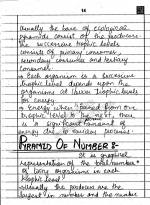 14
Usually the base of ecological
pyramids consist of the producers
the successive trophic levels
consists of primary consumers,
secondary consumers and tertiary
consumers.
→ Each organism in a successive
trophic level depends upon the
organisms at lower trophic levels
for energy.
→ energy when passed from one
trophic level to the next, there
is a significant amount of
energy due to various process.
PYRAMID OF NUMBER :-
It is graphical
representation of the total number
of living organisms in each
trophic level
→ Usually the producers are the
largest in number and the number